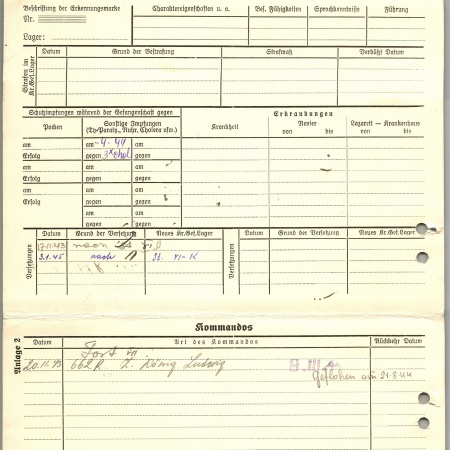 Beschriftung der Erkennungsmarke
Charaktereigenschaften u. a.
Bes. Fähigkeiten
Sprachkenntnisse
Führung
Nr.
Lager:
Strafen im Kr.Gef.Lager
Datum
Grund der Bestrafung
Strafmaß
Verbüßt Datum
Schutzimpfungen während der Gefangenschaft gegen
Erkrankungen
Pocken
Sonstige Impfungen
(Ty-Paraty., Ruhr, Cholera usw.)
Krankheit
Revier
von bis
Lazarett — Krankenhaus
von bis
am am -4-44 am
Erfolg gegen 3x Chol gegen
am am am
Erfolg gegen gegen
am am am
Erfolg gegen gegen
am am
gegen gegen
Versetzungen
Datum
Grund der Versetzung
Neues Kr.Gef.Lager
Versetzungen
Datum
Grund der Versetzung
Neues Kr.Gef.Lager
17.11.43 nach
3.1.45 nach
Kommandos
Anlage 2
Datum
Art des Kommandos
Rückkehr Datum
20.11.43 662 R Z. König Ludwig
Geflohen am 21.8.44